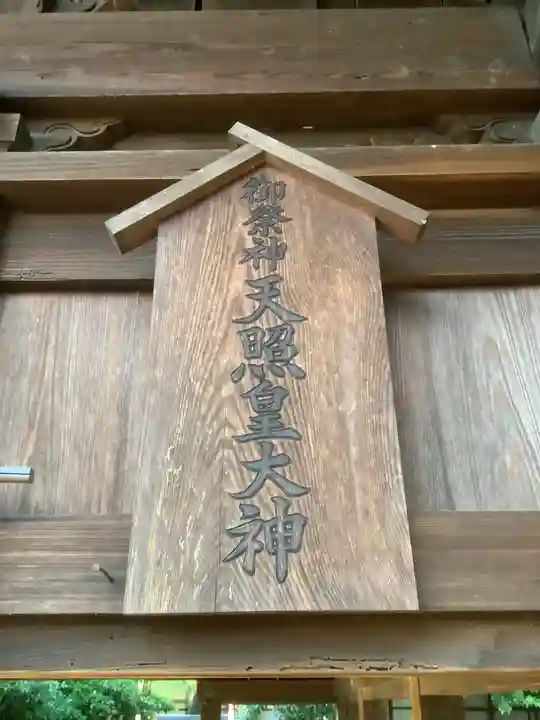 御祭神天照皇大神